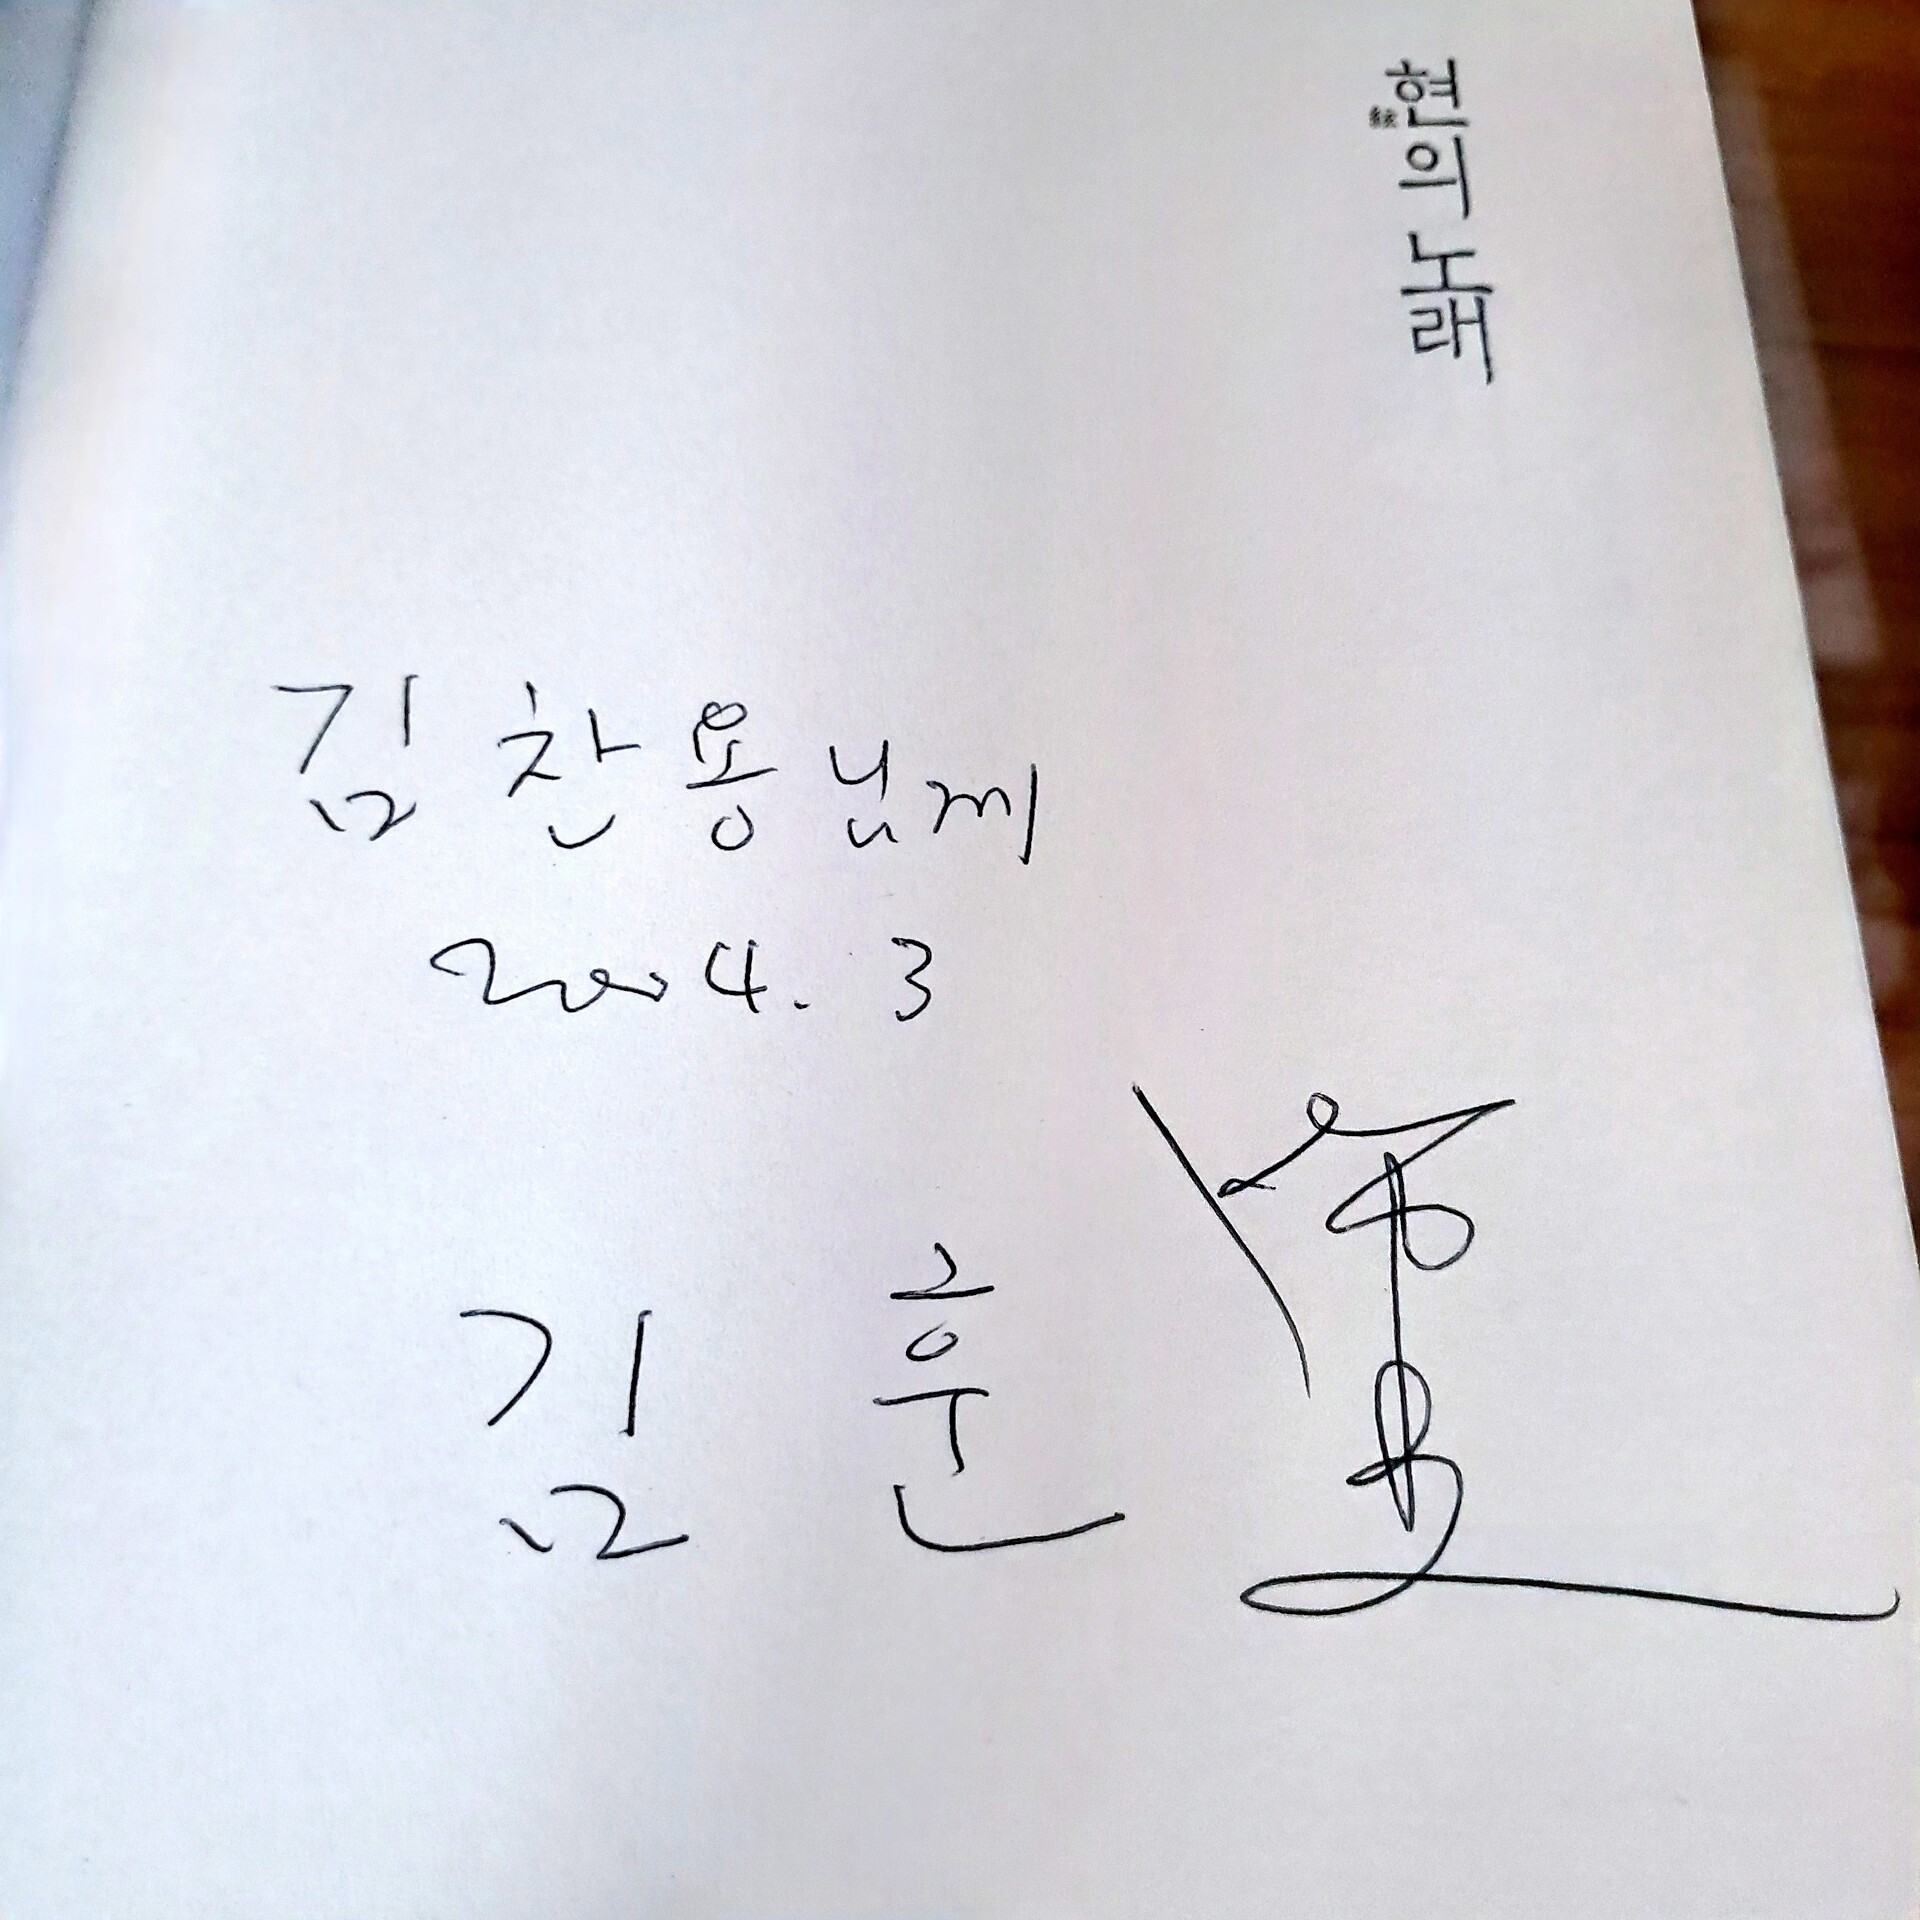 현의 노래
김찬용님께
2004. 3
김 훈